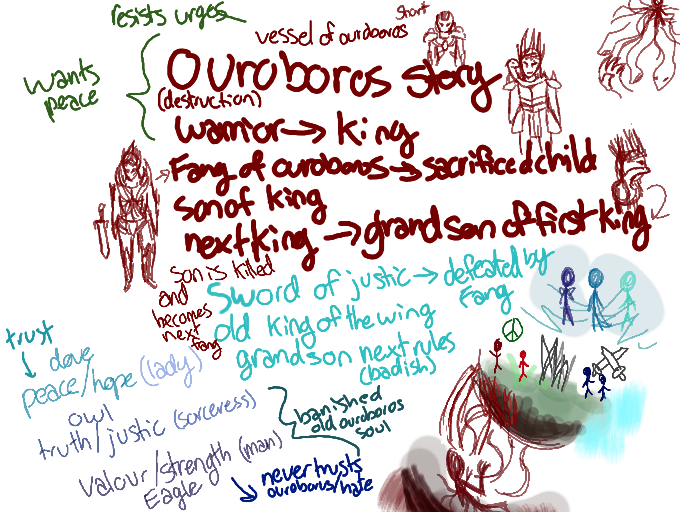 resists urges
vessel of ouroboros
short
wants
peace
Ouroboros story
(destruction)
warrior → king
Fang of ouroboros → sacrificed child
son of king
next king → grandson of first king
son is killed
and
becomes
next
fang
sword of justic → defeated by
Fang
old king of the wing
grandson next rules
(badish)
trust
dove
peace/hope (lady)
owl
truth/justic (sorceress)
valour/strength (man)
Eagle
banished
old ouroboros
soul
never trusts
ouroboros/hate